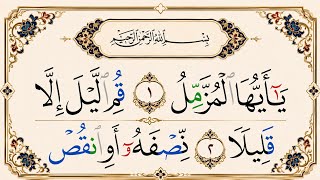 بِسْمِ اللَّهِ الرَّحْمَٰنِ الرَّحِيمِ
يَـٰٓأَيُّهَا ٱلْمُزَّمِّلُ ١ قُمِ ٱلَّيْلَ إِلَّا
قَلِيلًا ٢ نِّصْفَهُۥٓ أَوِ ٱنقُصْ